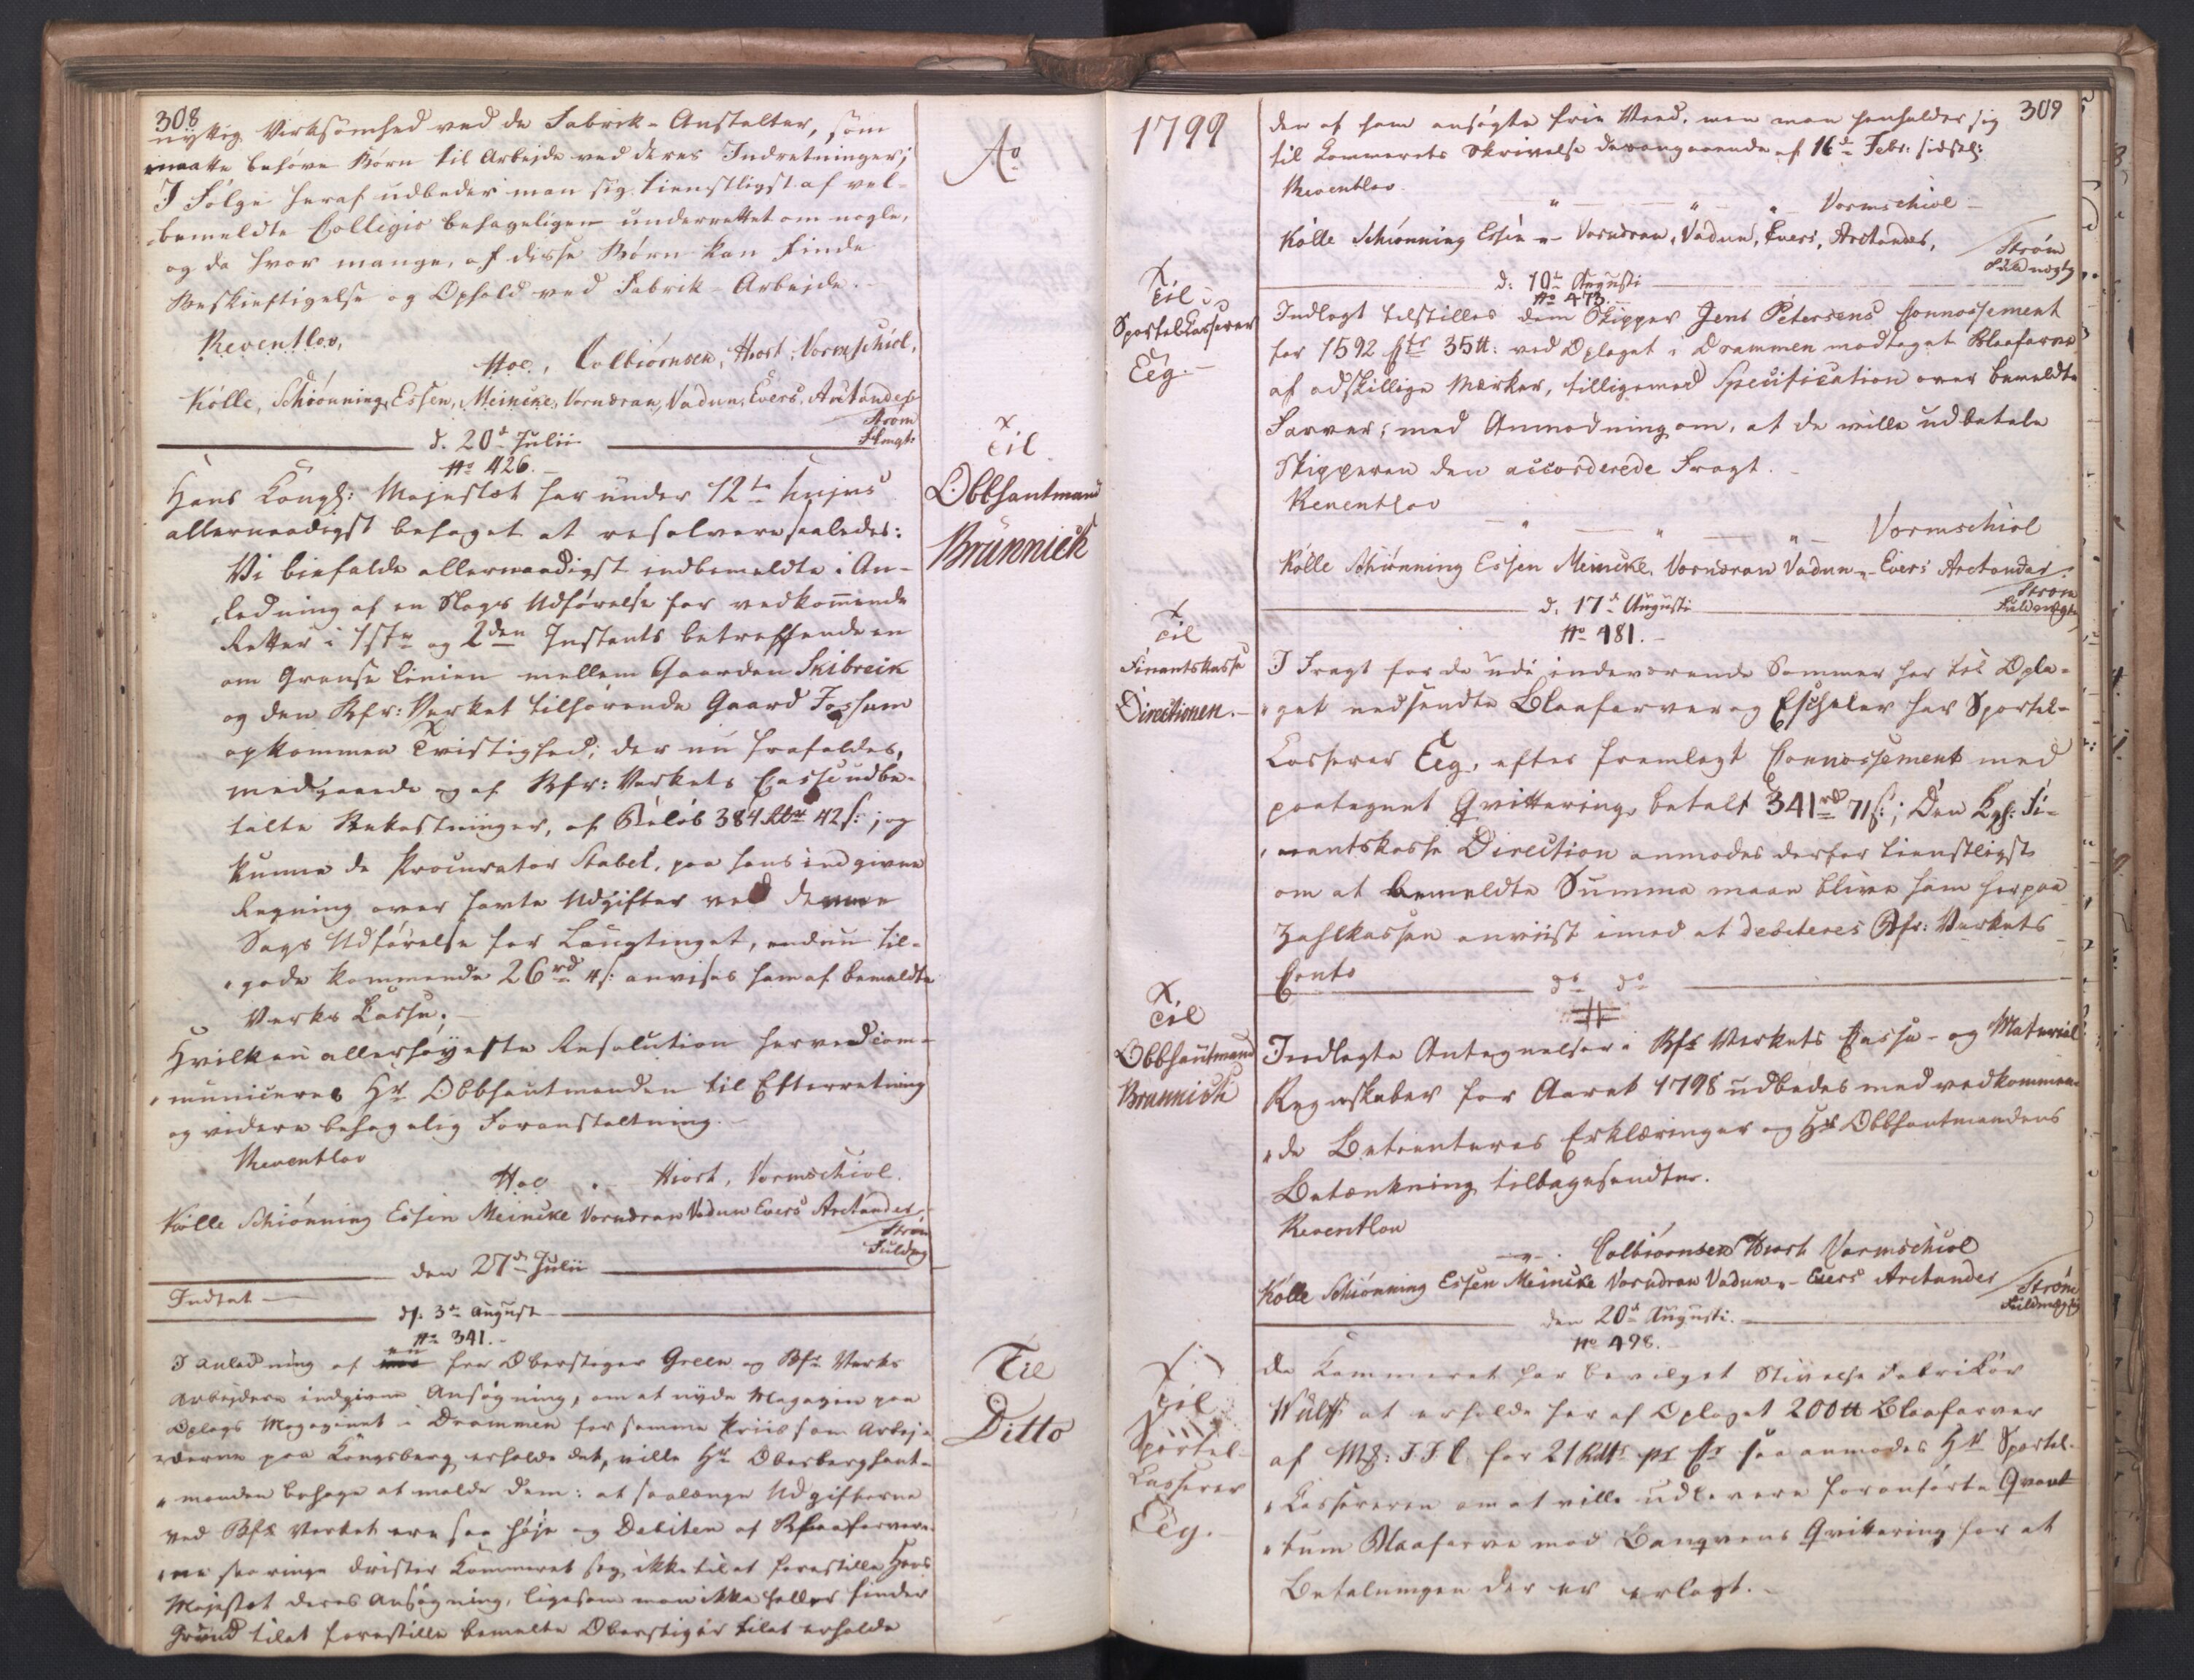 308
nyttig Virksomhed ved de Fabrik-Anstalter, som
maatte behøve Børn til Arbejde ved deres Indretninger;
I Følge heraf udbeder man sig tienstligst af vel-
bemeldte Collegio behageligen underrettet om nogle,
og da hvor mange, af disse Børn kan finde
Beskieftigelse og Ophold ved Fabrik-Arbejde.
Reventlov,
Hoe, Colbiørnsen, Hiort, Wormschiol,
Kølle, Schiønning, Essen, Meincke, Vorndran, Vadum, Evers, Arctander
Strøm
Flmgt
A°
d. 20d Julii
No 426.
Hans Kongl: Majestæt har under 12te hujus
allernaadigst behaget at resolvere saaledes:
Vi biefalde allernaadigst indbemeldte i An-
ledning af en Sags Udførelse for vedkommende
Retter i 1ste og 2den Instants betreffende en
om Grændse Linien mellem Gaarden Skibreik
og den Bfr: Værket tilhørende Gaard Fossum
opkommen Tvistighed; der nu hæfaldes,
medgaaede og af Bfr: Værkets Casse udbe-
talte Bekostninger, af Beløb 384 Rdr 42 s:; og
kunne de Procurator Stabel, paa hans indgivne
Regning over havte Udgifter ved denne
Sags Udførelse for Laugtinget, endnu til-
gode kommende 26rd 4s: anvises ham af bemeldte
Værks Casse.
Hvilken allerhøyeste Resolution herved com-
municeres Hr Obbhautmanden til Efterretning
og videre behagelig Foranstaltning.
Reventlov
Hoe " Hiort, Wormschiol.
Kølle Schiønning Essen Meincke Vorndran Vadum Evers Arctander
Strøm
Fuldmg
X
Til
Obbhautmand
Brünnick
den 27d Julii
Indtet
d. 3d August
No 341.
I Anledning af en fra Oberstiger Green og Bfr Værks
Arbejdere indgiven Ansøgning, om at nyde Magazin paa
Oplags Magazinet i Drammen for samme Priis som Arbej-
derne paa Kongsberg erholde det, ville Hr Oberberghaut-
manden behage at melde dem: at saalænge Udgifterne
ved Bfr Værket ere saa høje og Debiten af Blaafarver-
ne saa ringe drister Kammeret sig ikke til at forestille Hans
Majestæt deres Ansøgning, ligesom man ikke heller finder
Grund til at forestille bemelte Oberstiger til at erholde
Til
Ditto
1799
309
den af ham ansøgte frie Veed, men man henholder sig
til Kammerets Skrivelse derangaaende af 16d Febr: sidstl:
Reventlov
" " " Wormschiol
Kølle Schiønning Essen " Vorndran, Vadum, Evers, Arctander,
Strøm
Fuldmægtig
d: 10d Augusti
No 473.
X
Til
Sportelkasserer
Eeg.
Indlagt tilstilles dem Skipper Jens Petersens Connossement
for 1592 Ctr 35 tt: ved Oplaget i Drammen modtaget Blaafarve
af adskillige Mærker, tilligemed Specification over bemeldte
Farver; med Anmodning om, at de ville udbetale
Skipperen den accorderede Fragt.
Reventlov
" " " Wormschiol
Kølle Schiønning Essen Meincke, Vorndran Vadum " Evers Arctander
Strøm
Fuldmægtig
d. 17d Augusti
No 481.
X
Til
Finantskasse
Directionen.
I Fragt for de udi indeværende Sommer her til Opla-
get nedsendte Blaafarver og Eschaler har Sportel-
Casserer Eeg, efter fremlagt Connossement med
paategnet Qvittering, betalt 341rd 71s:; Den Kgl: Fi-
nantskasse Direction anmodes derfor tienstligst
om at bemeldte Summa maae blive ham herpaa
Zahlkassen anviist imod at debiteres Bfr: Værkets
Conto
do do
X.
Til
Obbhautmand
Brünnich
Indlagte Antegnelser i Bfr Værkets Casse- og Material
Regnskaber for Aaret 1798 udbedes med vedkommen-
de Betienteres Erklæringer og Hr Obbhautmandens
Betænkning tilbagesendte.
Reventlov
" Colbiørnsen Hiort Wormschiol
Kølle Schiønning Essen Meincke Vorndran Vadum " Evers Arctander
Strøm
Fuldmægtig
den 20d Augusti.
No 498.
X
Til
Sportel-
Casserer
Eeg.
Da Kammeret har bevilget Stivelse Fabrikør
Wulff at erholde her af Oplaget 200 tt Blaafarver
af Mk: F.F.C. for 21 Rdr pr Ctr saa anmodes Hr Sportel-
Kassereren om at ville udlevere foranførte Qvan-
tum Blaafarve mod Banqvens Qvittering for at
Betalningen der er erlagt.